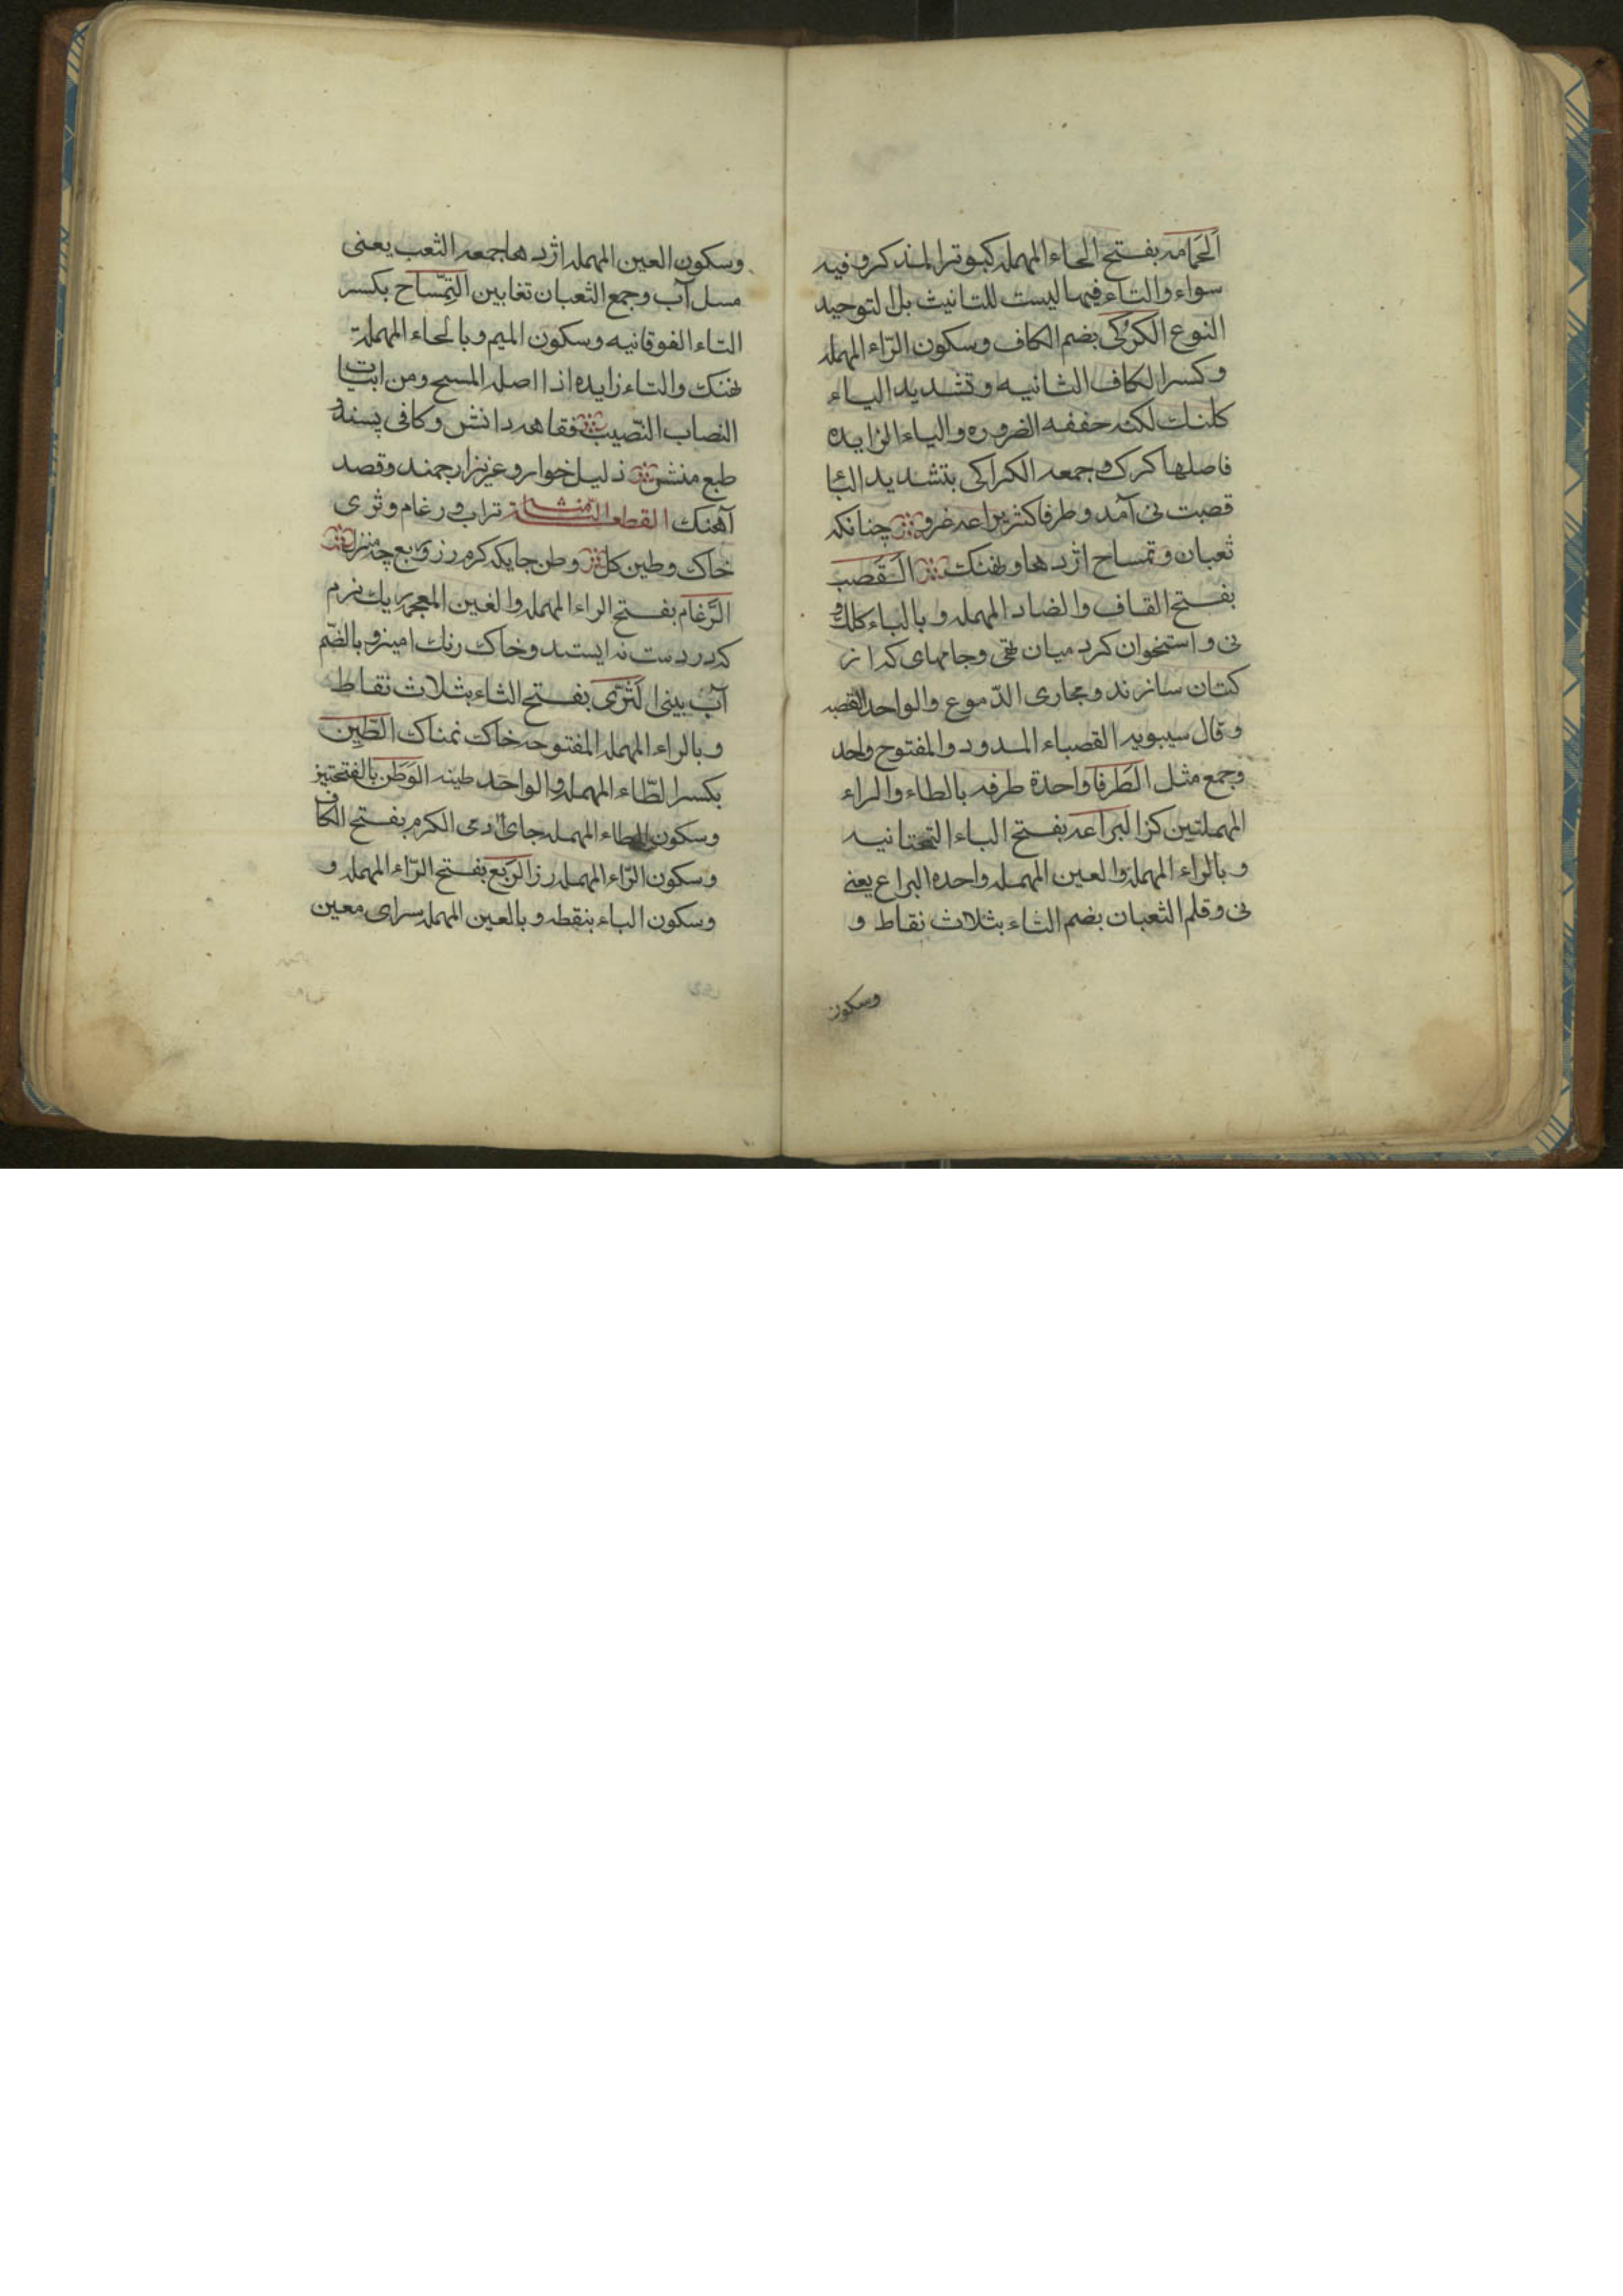 الحَمامه بفتح الحاء المهمله كبوتر المذكر وفيه
سواء والتاء فيها ليست للتانيث بل التوحيد
النوع الكُركى بضم الكاف وسكون الرّاء المهمله
وكسر الكاف الثانيه وتشديد الياء
كلنك لكنه خففه الضروره والياء الزايده
فاصلها كرك وجمعه الكراكى بتشديد اليا
قصبت نى آمد وطرفا كثر يراعه غرو چنانكه
ثعبان وتمساح اژدها ونهنك القَصب
بفتح القاف والضاد المهمله وبالباء كلك و
نى و استخوان كرد ميان تهى وجامهاى كه از
كتان سازند ومجارى الدّموع والواحد القصبه
وقال سيبويه القصباء الممدود والمفتوح واحد
وجمع مثل الطَرفا واحدة طرفه بالطاء والراء
المهملتين كز اليراعه بفتح الياء التحتانيه
وبالراء المهملة والعين المهمله واحده اليراع يعنى
نى وقلم الثعبان بضم الثاء بثلاث نقاط و
وسكون
وسكون العين المهمله اژدها جمعه الثعب يعنى
مسل آب وجمع الثعبان تغابين التِمساح بكسر
التاء الفوقانيه وسكون الميم وبالحاء المهملة
نهنك والتاء زايده اذا اصله المسح ومن ابيات
النصاب النّصيب فقاهه دانش وكافى پسنده
طبع منش ذليل خوار و عزيز ارجمند وقصد
آهنك القطعه الثامنة تراب ورغام وثرى
خاك وطين كل وطن جايكه كرم رز وربع چه منزل
الرَّغام بفتح الراء المهمله والغين المعجمه ريك نرم
كه در دست نه ايستد وخاك رنك اميز و بالضّم
آب بينى الثَرى بفتح الثاء بثلاث نقاط
وبالراء المهمله المفتوحه خاك نمناك الطّين
بكسر الطّاء المهمله والواحد طينه الوَطَن بالفتحتين
وسكون الطاء المهمله جاى آدمى الكرم بفتح الكاف
وسكون الرّاء المهمله رز الرَبع بفتح الرّاء المهمله و
وسكون الباء بنقطه وبالعين المهمله سراى معين